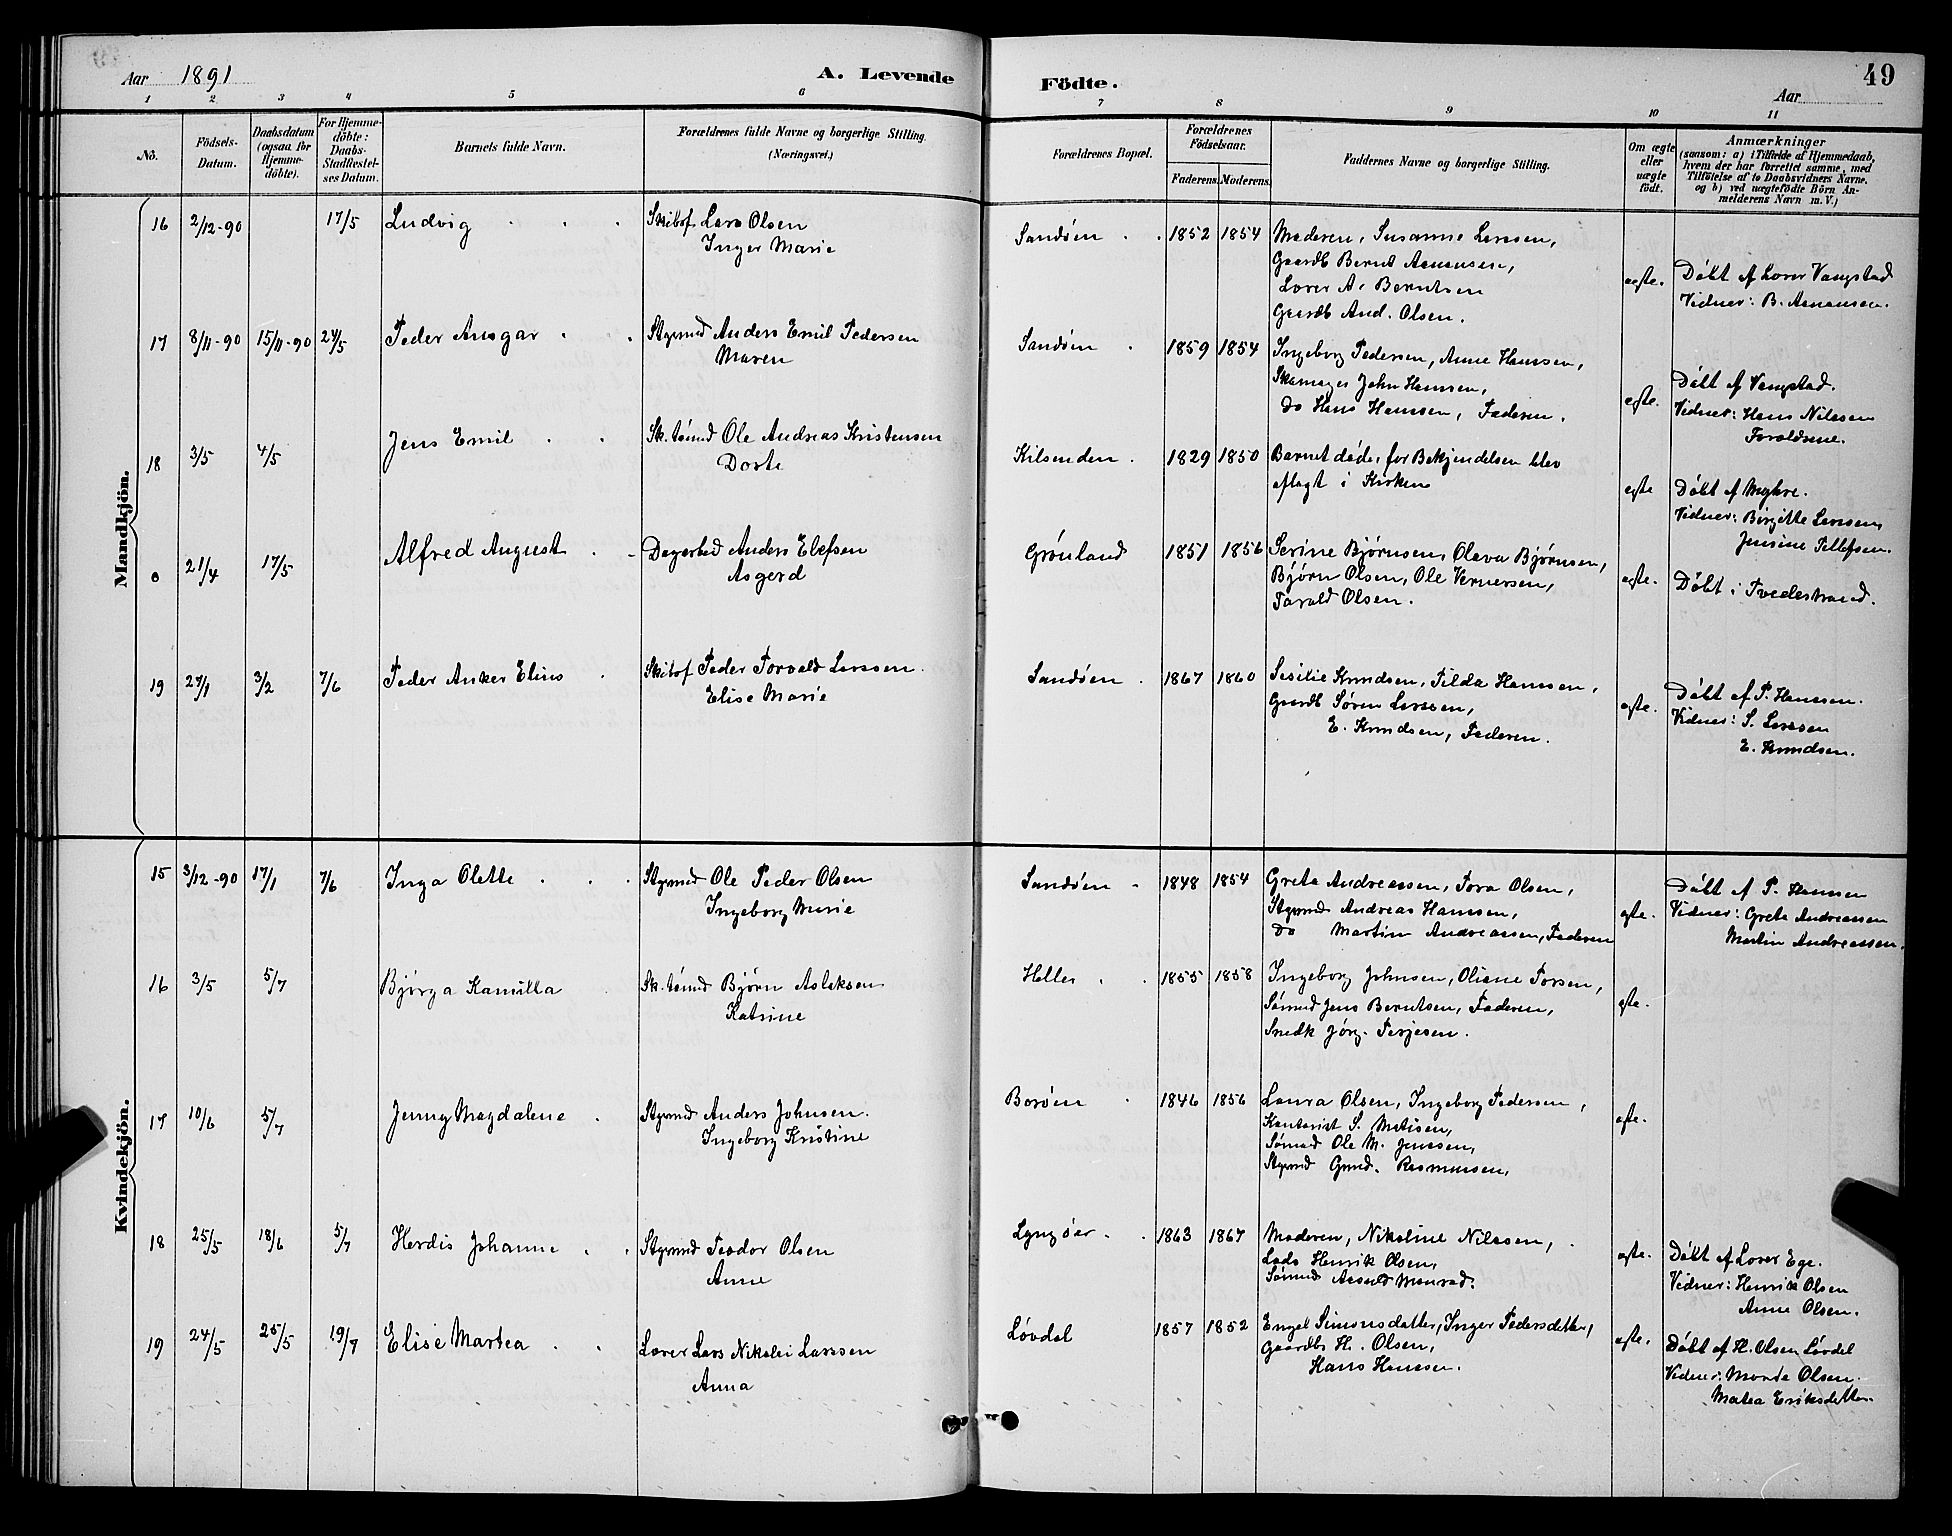 Aar 1891
A. Levende
Födte.
49
Aar
1 2 3 4 5 6 7 8 9 10 11
No.
Födsels-
Datum.
Daabsdatum
(ogsaa for
Hjemme-
döbte).
For Hjemme-
döbte:
Daabs-
Stadfæstel-
ses Datum.
Barnets fulde Navn.
Forældrenes fulde Navne og borgerlige Stilling.
(Næringsvei.)
Forældrenes Bopæl.
Forældrenes
Födselsaar.
Faderens. Moderens.
Faddernes Navne og borgerlige Stilling.
Om ægte
eller
uægte
födt.
Anmærkninger
(saasom: a) i Tilfælde af Hjemmedaab,
hvem der har forrettet samme, med
Tilföielse af to Daabsvidners Navne,
og b) ved uægtefödte Börn An-
melderens Navn m. V.)
Mandkjön.
16 2/12-90 17/5 Ludvig Skibsf Lars Olsen Sandøen 1852 1854 Moderen, Susanne Larssen,
Inger Marie
Gaardb Bernt Asmansen,
Lærer A. Berntsen
Gaardb And. Olsen.
ægte.
Döbt af Lærer Vangstad
Vidner: B. Asmansen.
17 8/11-90 15/11-90 24/5 Peder Ansgar Styrmd Anders Emil Pedersen Sandøen 1859 1854 Ingeborg Pedersen, Anne Hanssen,
Maren
Skomager John Hanssen,
Do Hans Hanssen, Faderen.
egte.
Döbt af Vangstad.
Vidner: Hans Nilssen
Forældrene.
18 3/5 4/5 Jens Emil Sk.tömd Ole Andreas Kristensen Kilsenden 1829 1850 Barnet döde, før Bekjendelsen blev
Dorte
aflagt i Kirken
egte
Döbt af Myhre.
Vidner: Birgitte Larssen,
Jensine Tellefsen.
o 21/4 17/5 Alfred August Dagarbed Anders Elefsen Grønland 1851 1856 Serine Bjørnsen, Olava Bjørnsen,
Asgerd
Bjørn Olsen, Ole Vernersen,
Tarald Olsen.
egte.
Döbt i Tvedestrand.
19 27/1 3/2 7/6 Peder Anker Elius Skibsf Peder Torvald Larssen Sandøen 1867 1860 Sesilie Knudsen, Tilda Hanssen,
Elise Marie
Gaardb Søren Larssen,
E. Knudsen, Faderen.
egte.
Döbt af P. Hanssen.
Vidner: S. Larssen
E. Knudsen.
Kvindekjön.
15 3/12-90 17/1 7/6 Inga Olette Styrmd Ole Peder Olsen Sandøen 1848 1854 Greta Andreassen, Tora Olsen,
Ingeborg Marie
Styrmd Andreas Hanssen,
Do Martin Andreassen, Faderen
egte.
Döbt af P. Hanssen
Vidner: Greta Andreassen
Martin Andreassen.
16 3/5 5/7 Bjørga Kamilla Sk.tömd Bjørn Aslaksen Helle 1855 1858 Ingeborg Johnsen, Oliane Torsen,
Katrine
Sömd Jens Berntsen, Faderen,
Snedk Jörg. Terjesen.
egte.
17 10/6 5/7 Jenny Magdalene Styrmd Anders Johnsen Borøen 1846 1856 Laura Olsen, Ingeborg Pedersen,
Ingeborg Kristine
Kontorist S. Matisen,
Sömd Ole M. Jenssen,
Styrmd Gund. Rasmussen,
egte.
18 25/5 18/6 5/7 Herdis Johanne Styrmd Teodor Olsen Lyngøer 1863 1867 Moderen, Nikoline Nilssen,
Anne
Lods Henrik Olsen,
Sömd Monrad.
egte.
Döbt af Lærer Ege.
Vidner: Henrik Olsen
Anne Olsen.
19 24/5 25/5 19/7 Elise Martea Lærer Lars Nikolai Larssen Løvdal 1857 1852 Engel Simonsdatter, Inger Pedersdatter,
Anna
Gaardb H. Olsen,
Hans Hanssen.
egte.
Döbt af H. Olsen Løvdal
Vidner: Olsen.
Matea Eriksdatter.